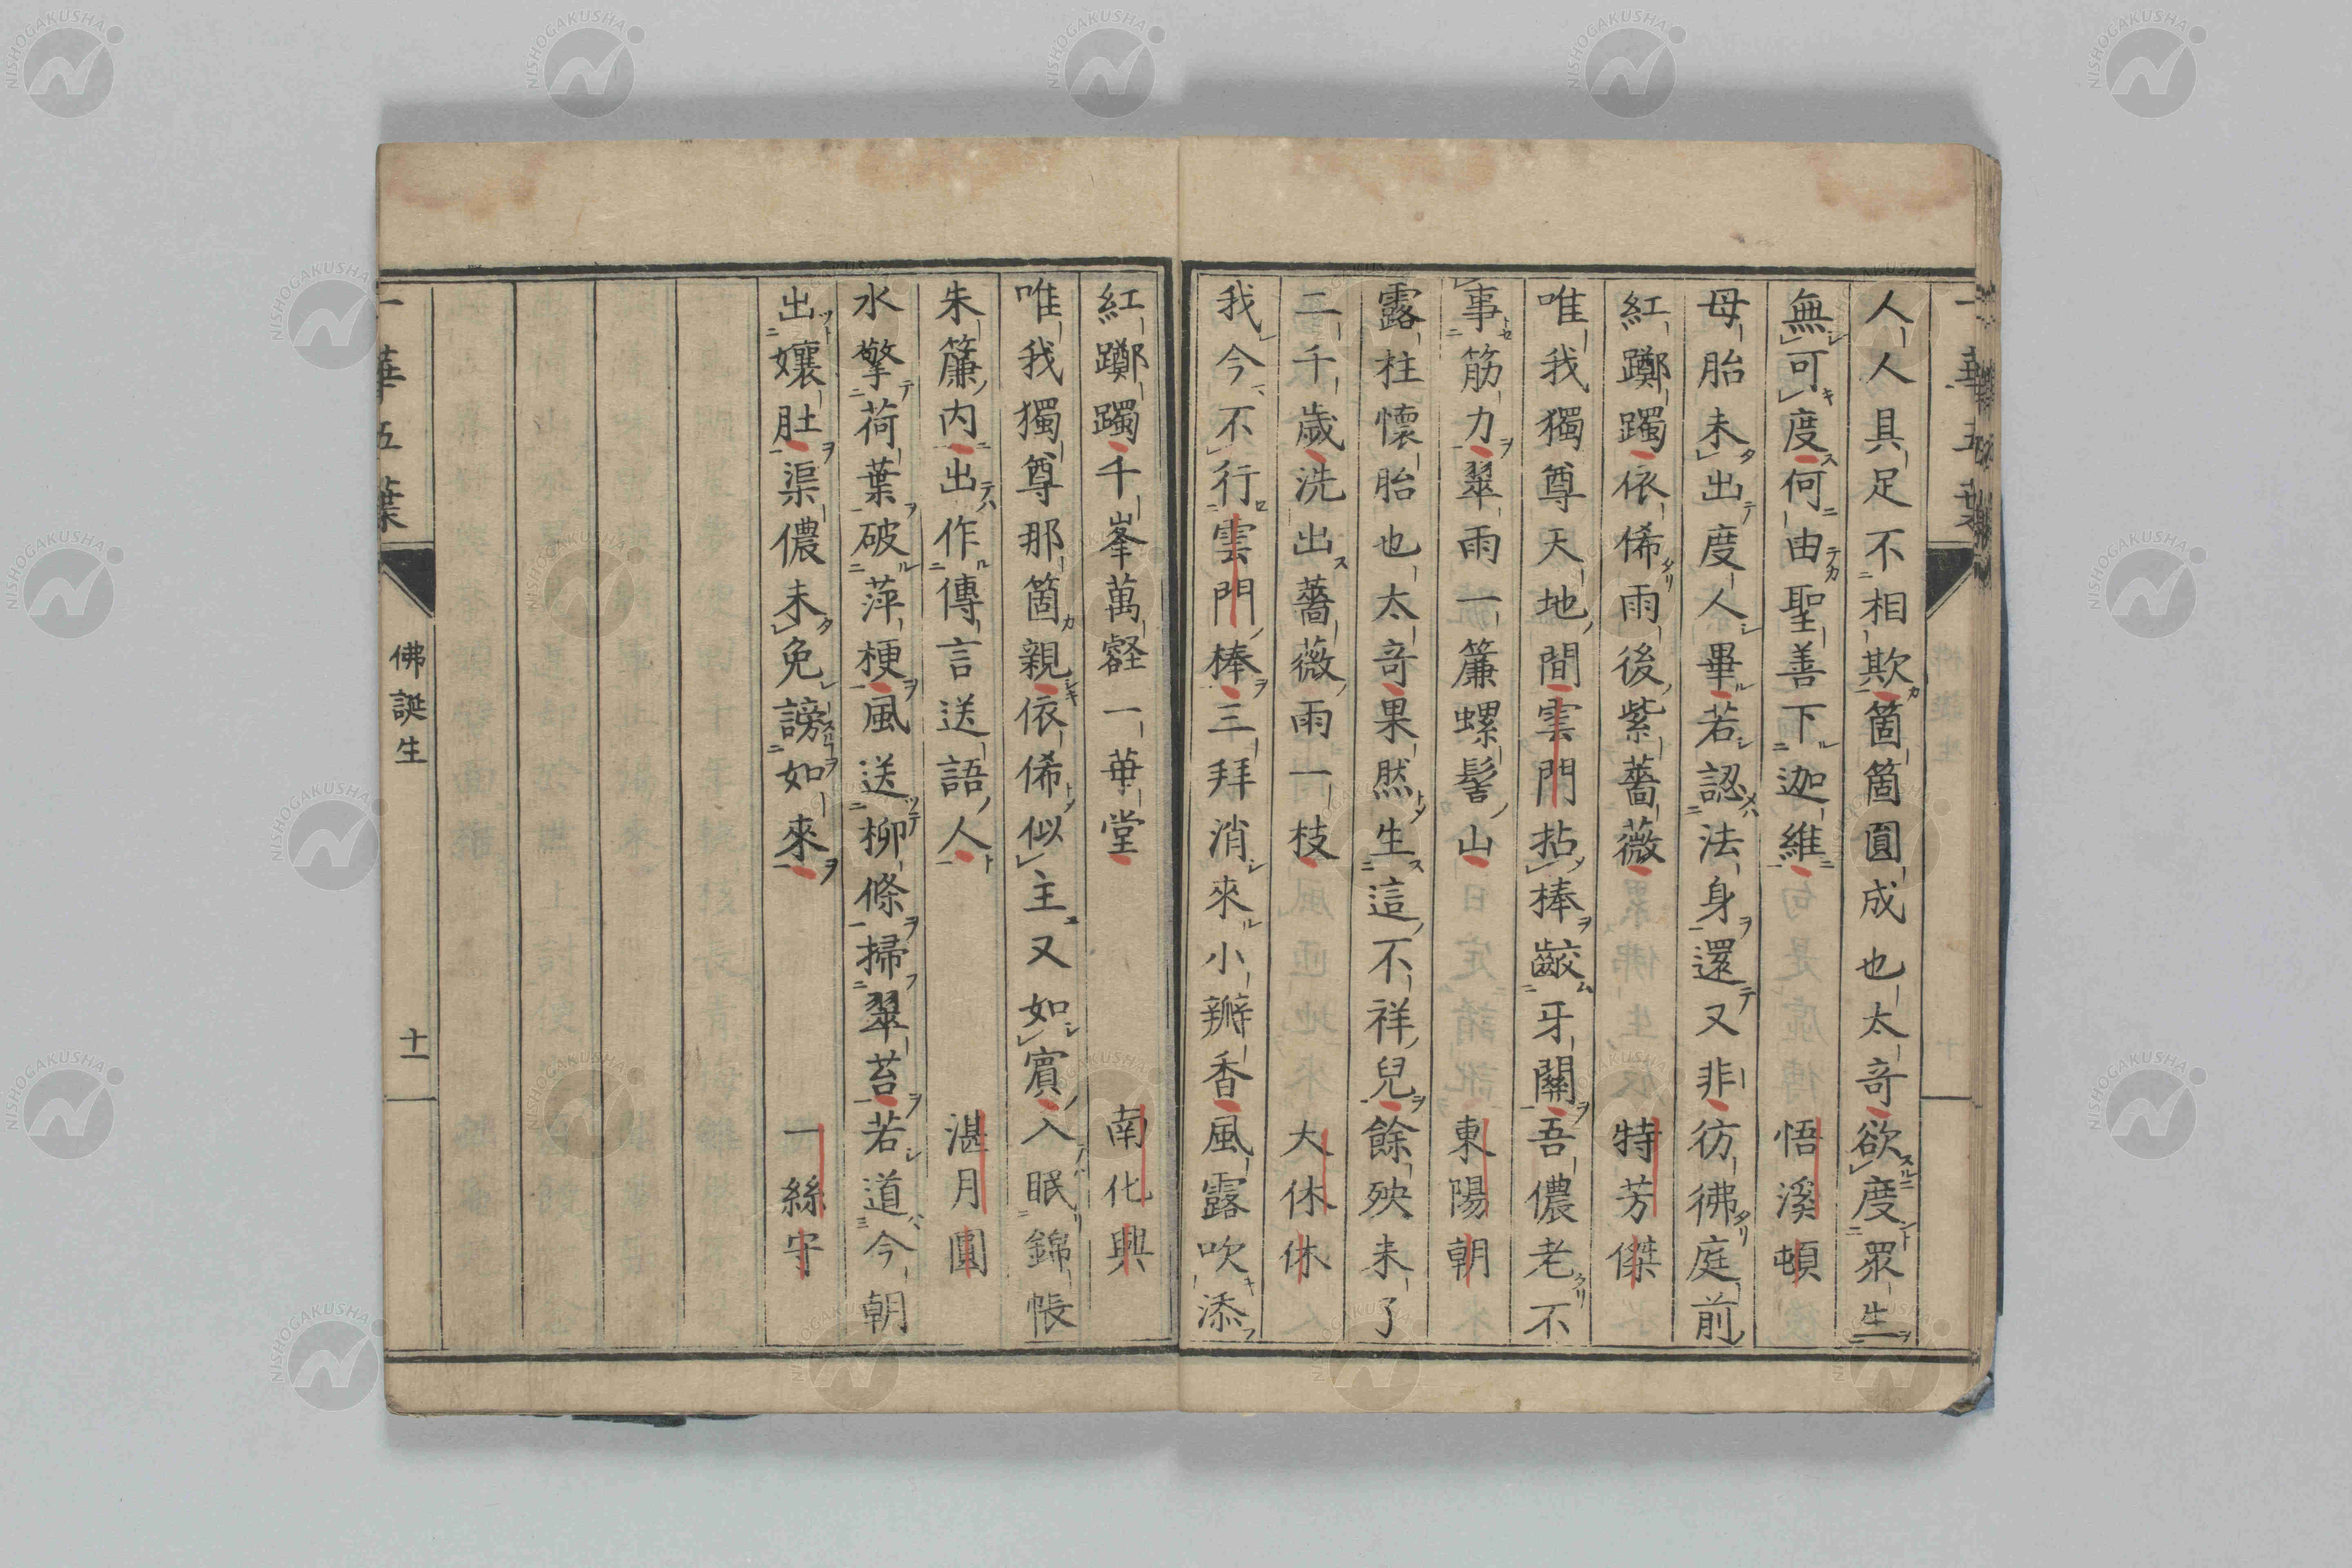 人人具足不相欺箇箇圓成也太奇欲度眾生
無可度何由聖善下迦維　悟溪頓
母胎未出度人畢若認法身還又非彷彿庭前
紅躑躅依俙雨後紫薔薇　特芳傑
唯我獨尊天地間雲門拈棒齩牙關吾儂老不
事筋力翠雨一簾螺髻山　東陽朝
露柱懷胎也太奇果然生這不祥兒餘殃未了
二千歲洗出薔薇雨一枝　大休休
我今不行雲門棒三拜消來小瓣香風露吹添
紅躑躅千峯萬壑一華堂　南化興
唯我獨尊那箇親依俙似主又如賓入眠錦帳
朱簾內出作傳言送語人　湛月圓
水擎荷葉破萍梗風送柳條掃翠苔若道今朝
出孃肚渠儂未免謗如來　一絲守
一華五葉　佛誕生　十一
NISHOGAKUSHA